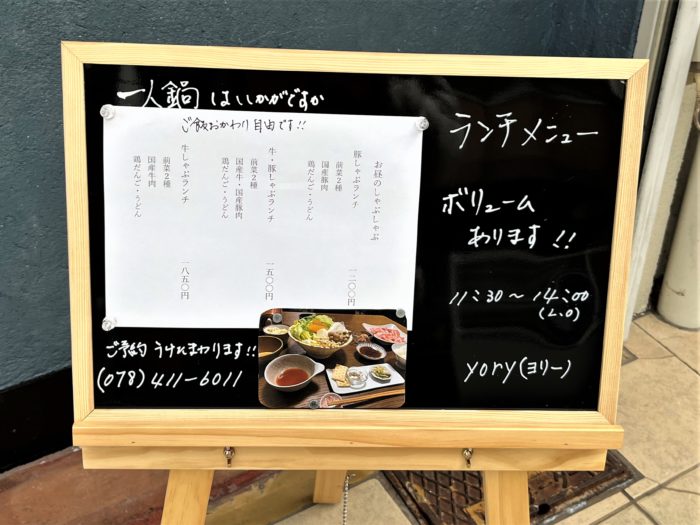 一人鍋はいかがですか
ご飯おかわり自由です!!
お昼のしゃぶしゃぶ
豚しゃぶランチ 一二〇〇円
前菜2種
国産豚肉
鶏だんご・うどん
牛・豚しゃぶランチ 一五〇〇円
前菜2種
国産牛・国産豚肉
鶏だんご・うどん
牛しゃぶランチ 一八五〇円
前菜2種
国産牛肉
鶏だんご・うどん
ご予約うけたまわります!!
(078)411-6011
ランチメニュー
ボリューム
あります!!
11:30〜14:00
(L.O)
yory(ヨリー)